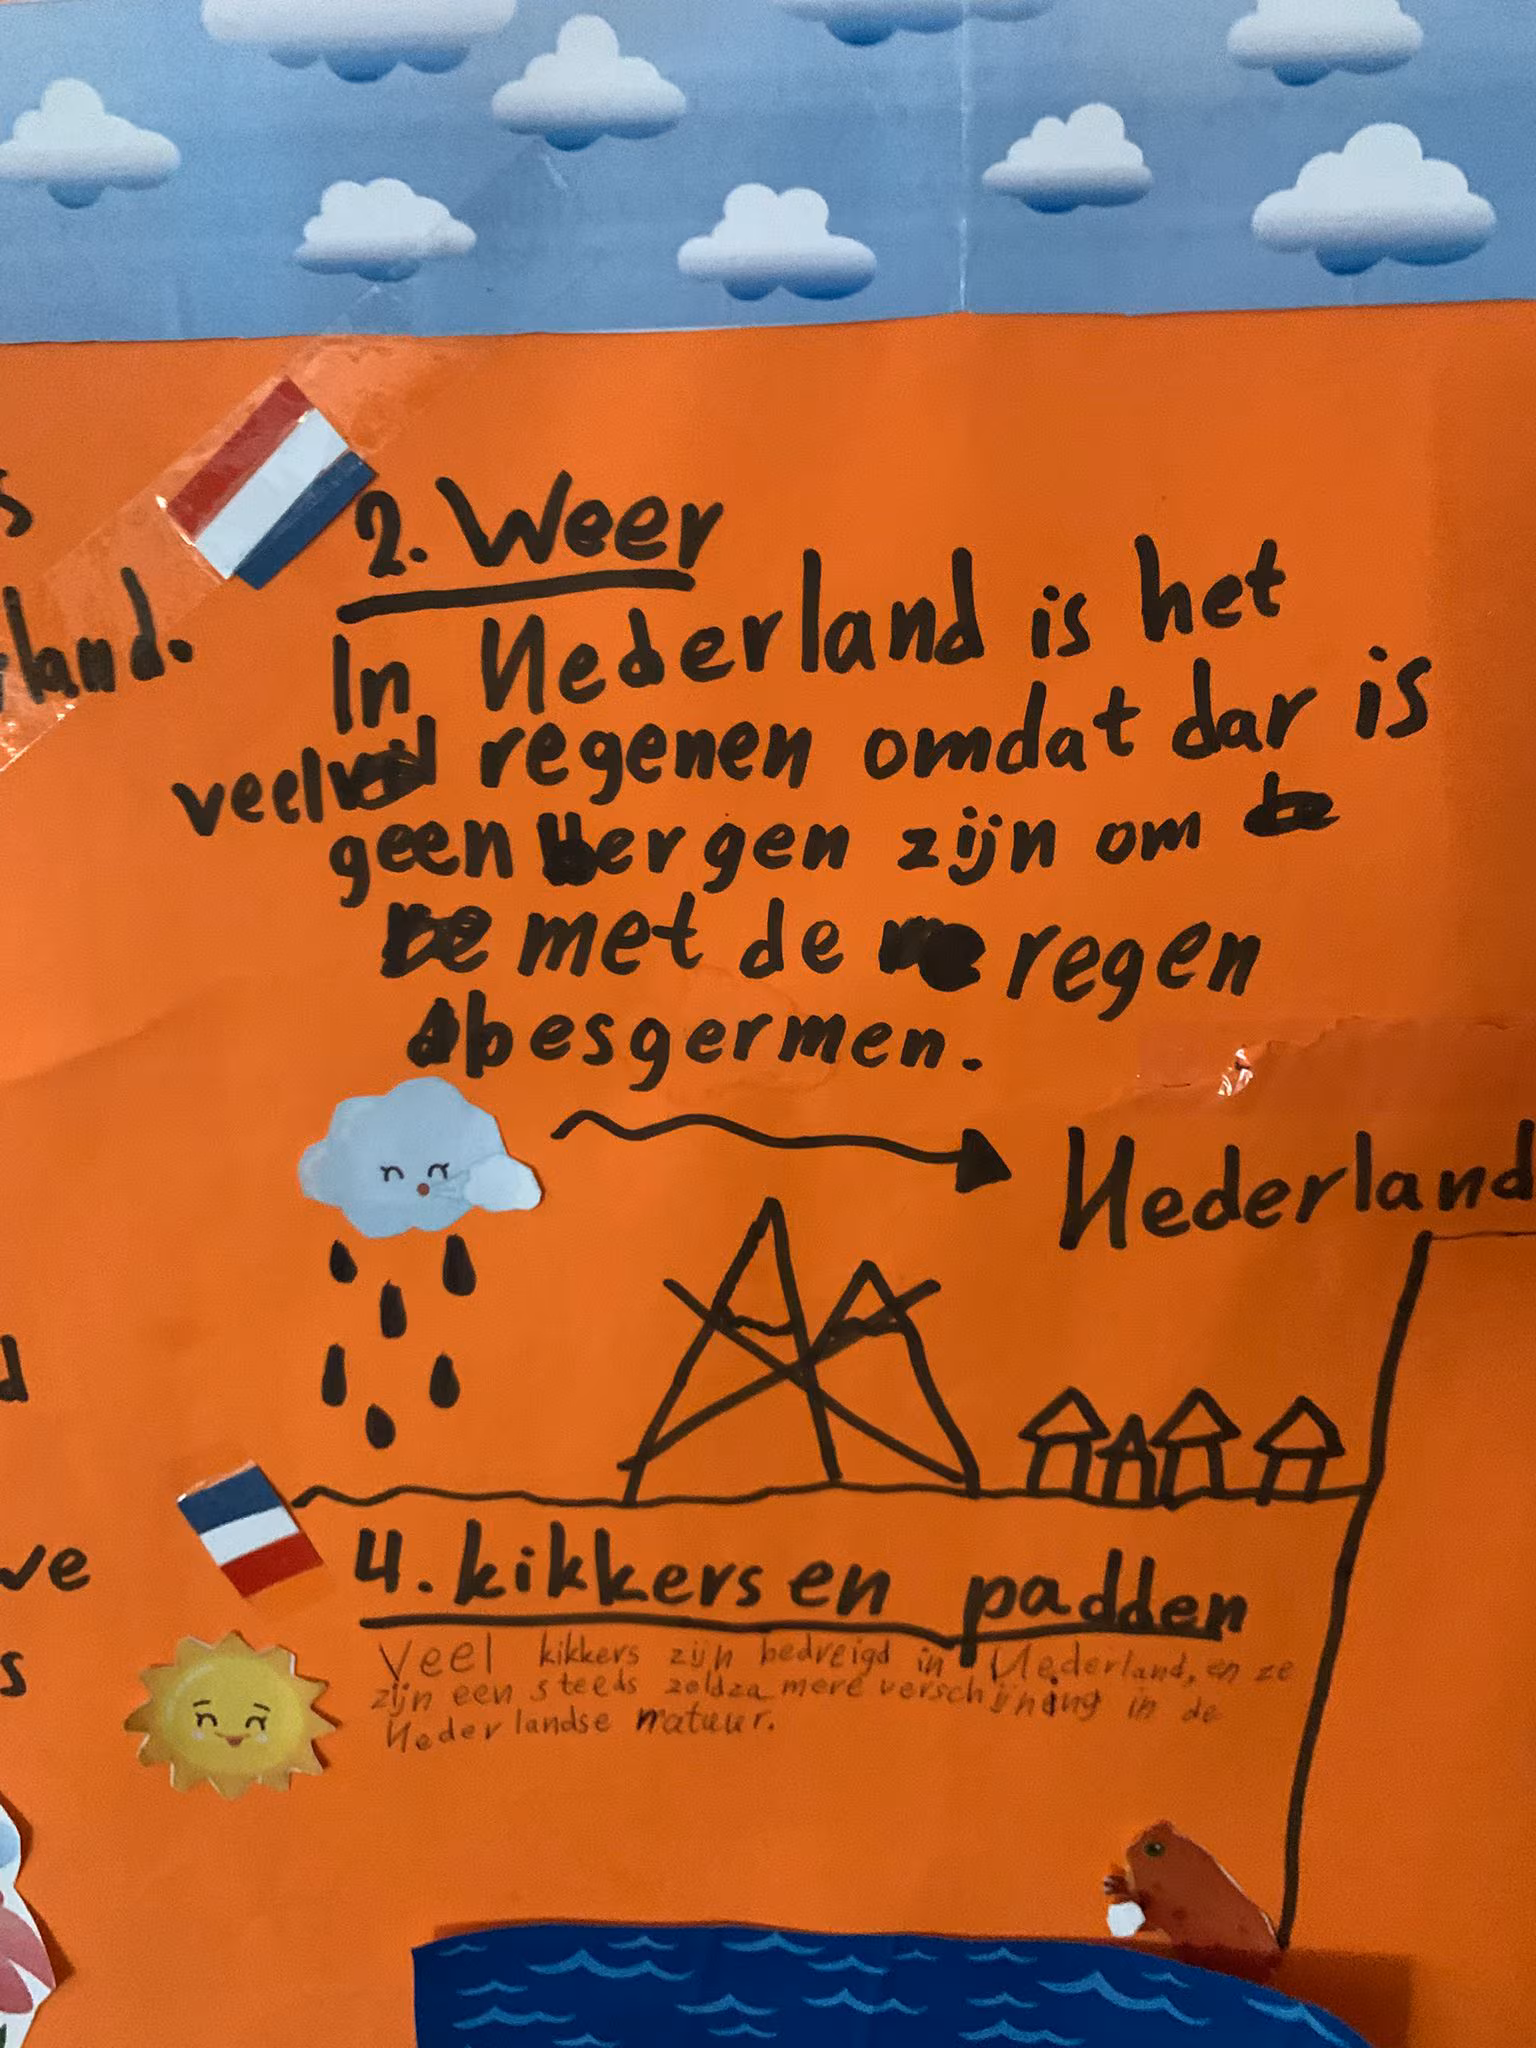 s
land.
2. Weer
In Nederland is het
veel regenen omdat dar is
geen bergen zijn om
met de regen
besgermen.
Nederland
d
4. kikkers en padden
ve
Veel kikkers zijn bedreigd in Nederland, en ze
s
zijn een steeds zoldza mere verschijning in de
Nederlandse natuur.